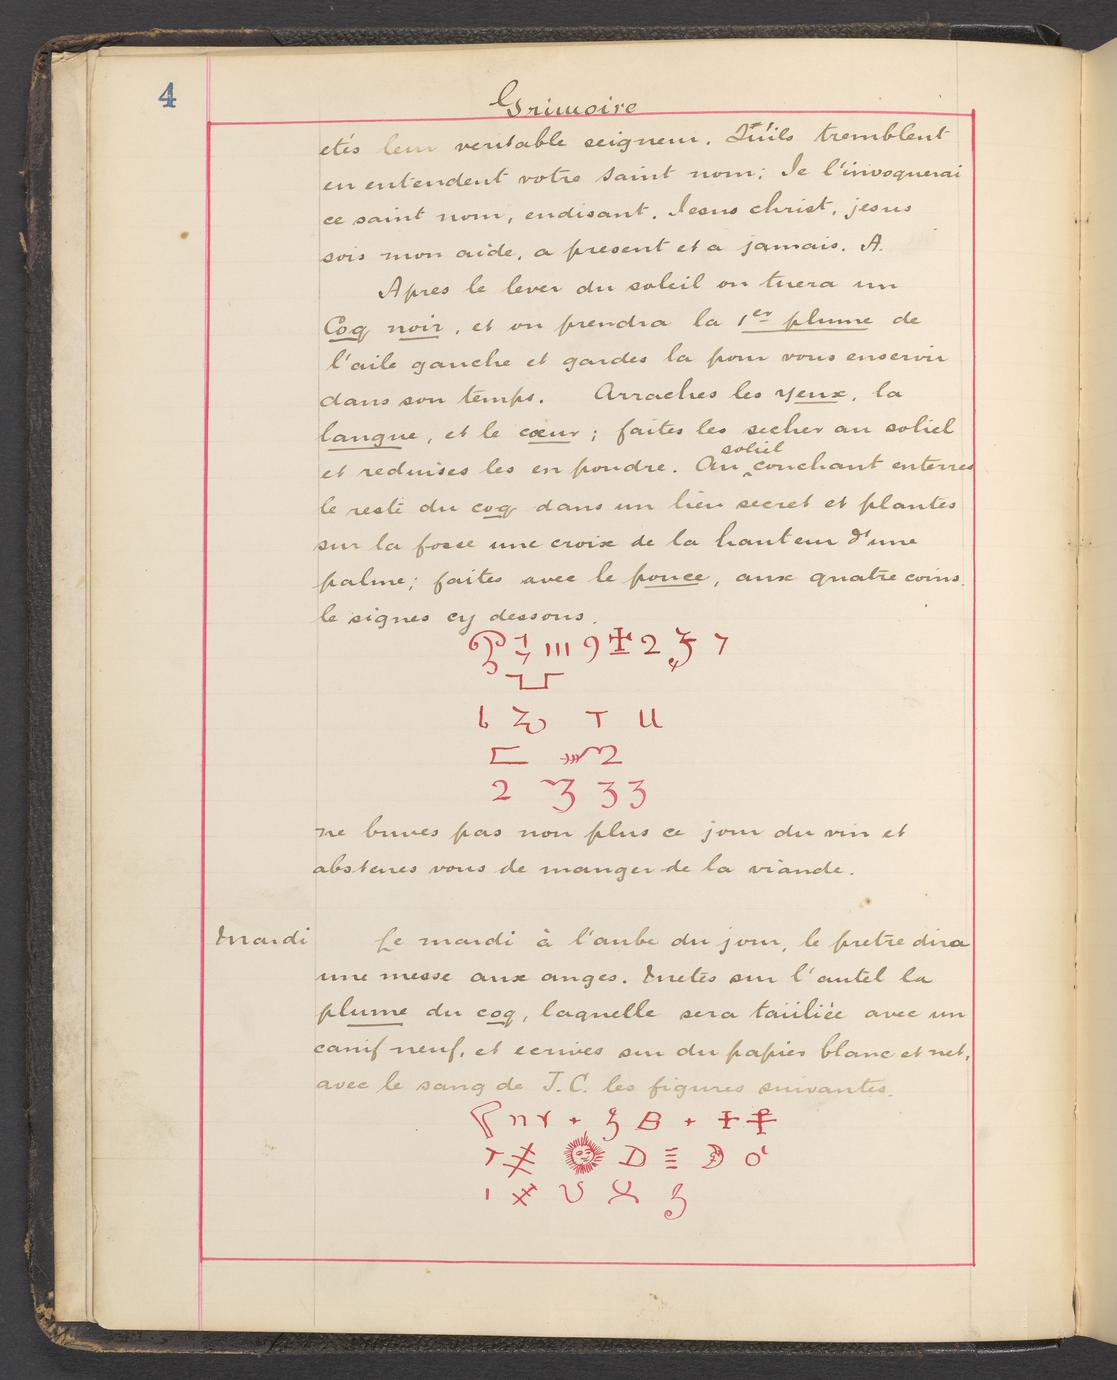 4
Grimoire
etés leur veritable seigneur. Qu'ils tremblent
en entendent votre saint nom; Je l'invoquerai
ce saint nom, endisant. Jesus christ, jesus
sois mon aide, a present et a jamais. A.
Apres le lever du soleil on tuera un
Coq noir, et on prendra la 1er plume de
l'aile gauche et gardes la pour vous enservir
dans son temps. Arraches les yeux, la
langue, et le cœur; faites les secher au soliel
et reduises les en poudre. Au soliel couchant enterres
le reste du coq dans un lieu secret et plantes
sur la fosse une croix de la hauteur d'une
palme; faites avec le pouce, aux quatre coins.
le signes cy dessous.
ne buves pas non plus ce jour du vin et
abstenes vous de manger de la viande.
Mardi Le mardi à l'aube du jour, le pretre dira
une messe aux anges. Metes sur l'autel la
plume du coq, laquelle sera taiiliée avec un
canif neuf, et ecrives sur du papier blanc et net,
avec le sang de J.C. les figures suivantes.